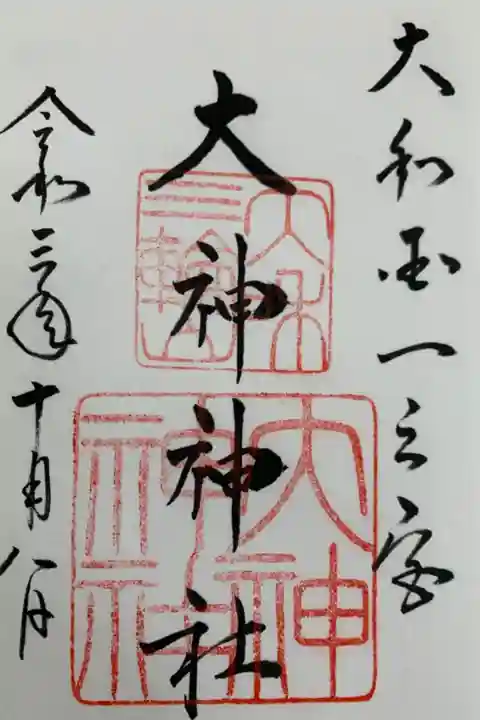 大和国一之宮
大神神社
令和三年十月八日
大和
三輪
大神
神社